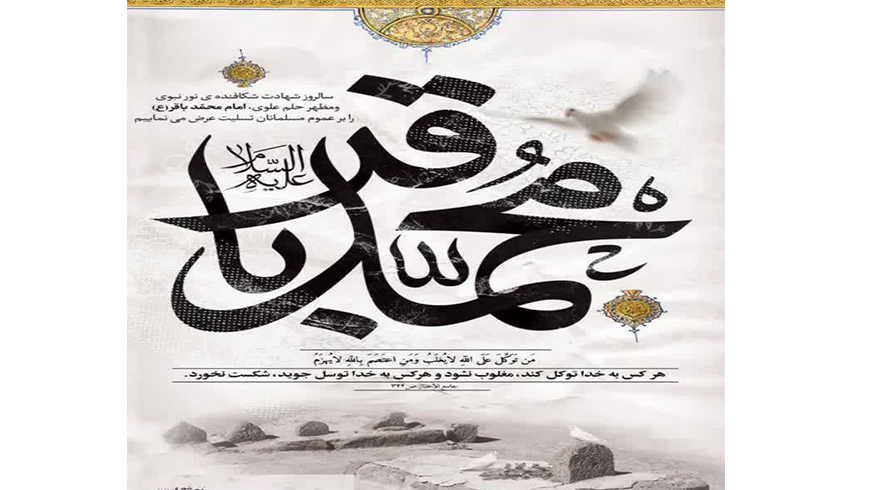 سالروز شهادت شکافنده ی نور نبوی
ومظهر حلم علوی، امام محمّد باقر(ع)
را بر عموم مسلمانان تسلیت عرض می نماییم
محمد باقر
علیه السّلام
مَن تَوَکَّلَ عَلَی اللهِ لایُغلَبُ وَمَنِ اعتَصَمَ بِاللهِ لایُهزَمُ
هر کس به خدا توکل کند، مغلوب نشود و هرکس به خدا توسل جوید، شکست نخورد.
جامع الأخبار/ص۳۲۲